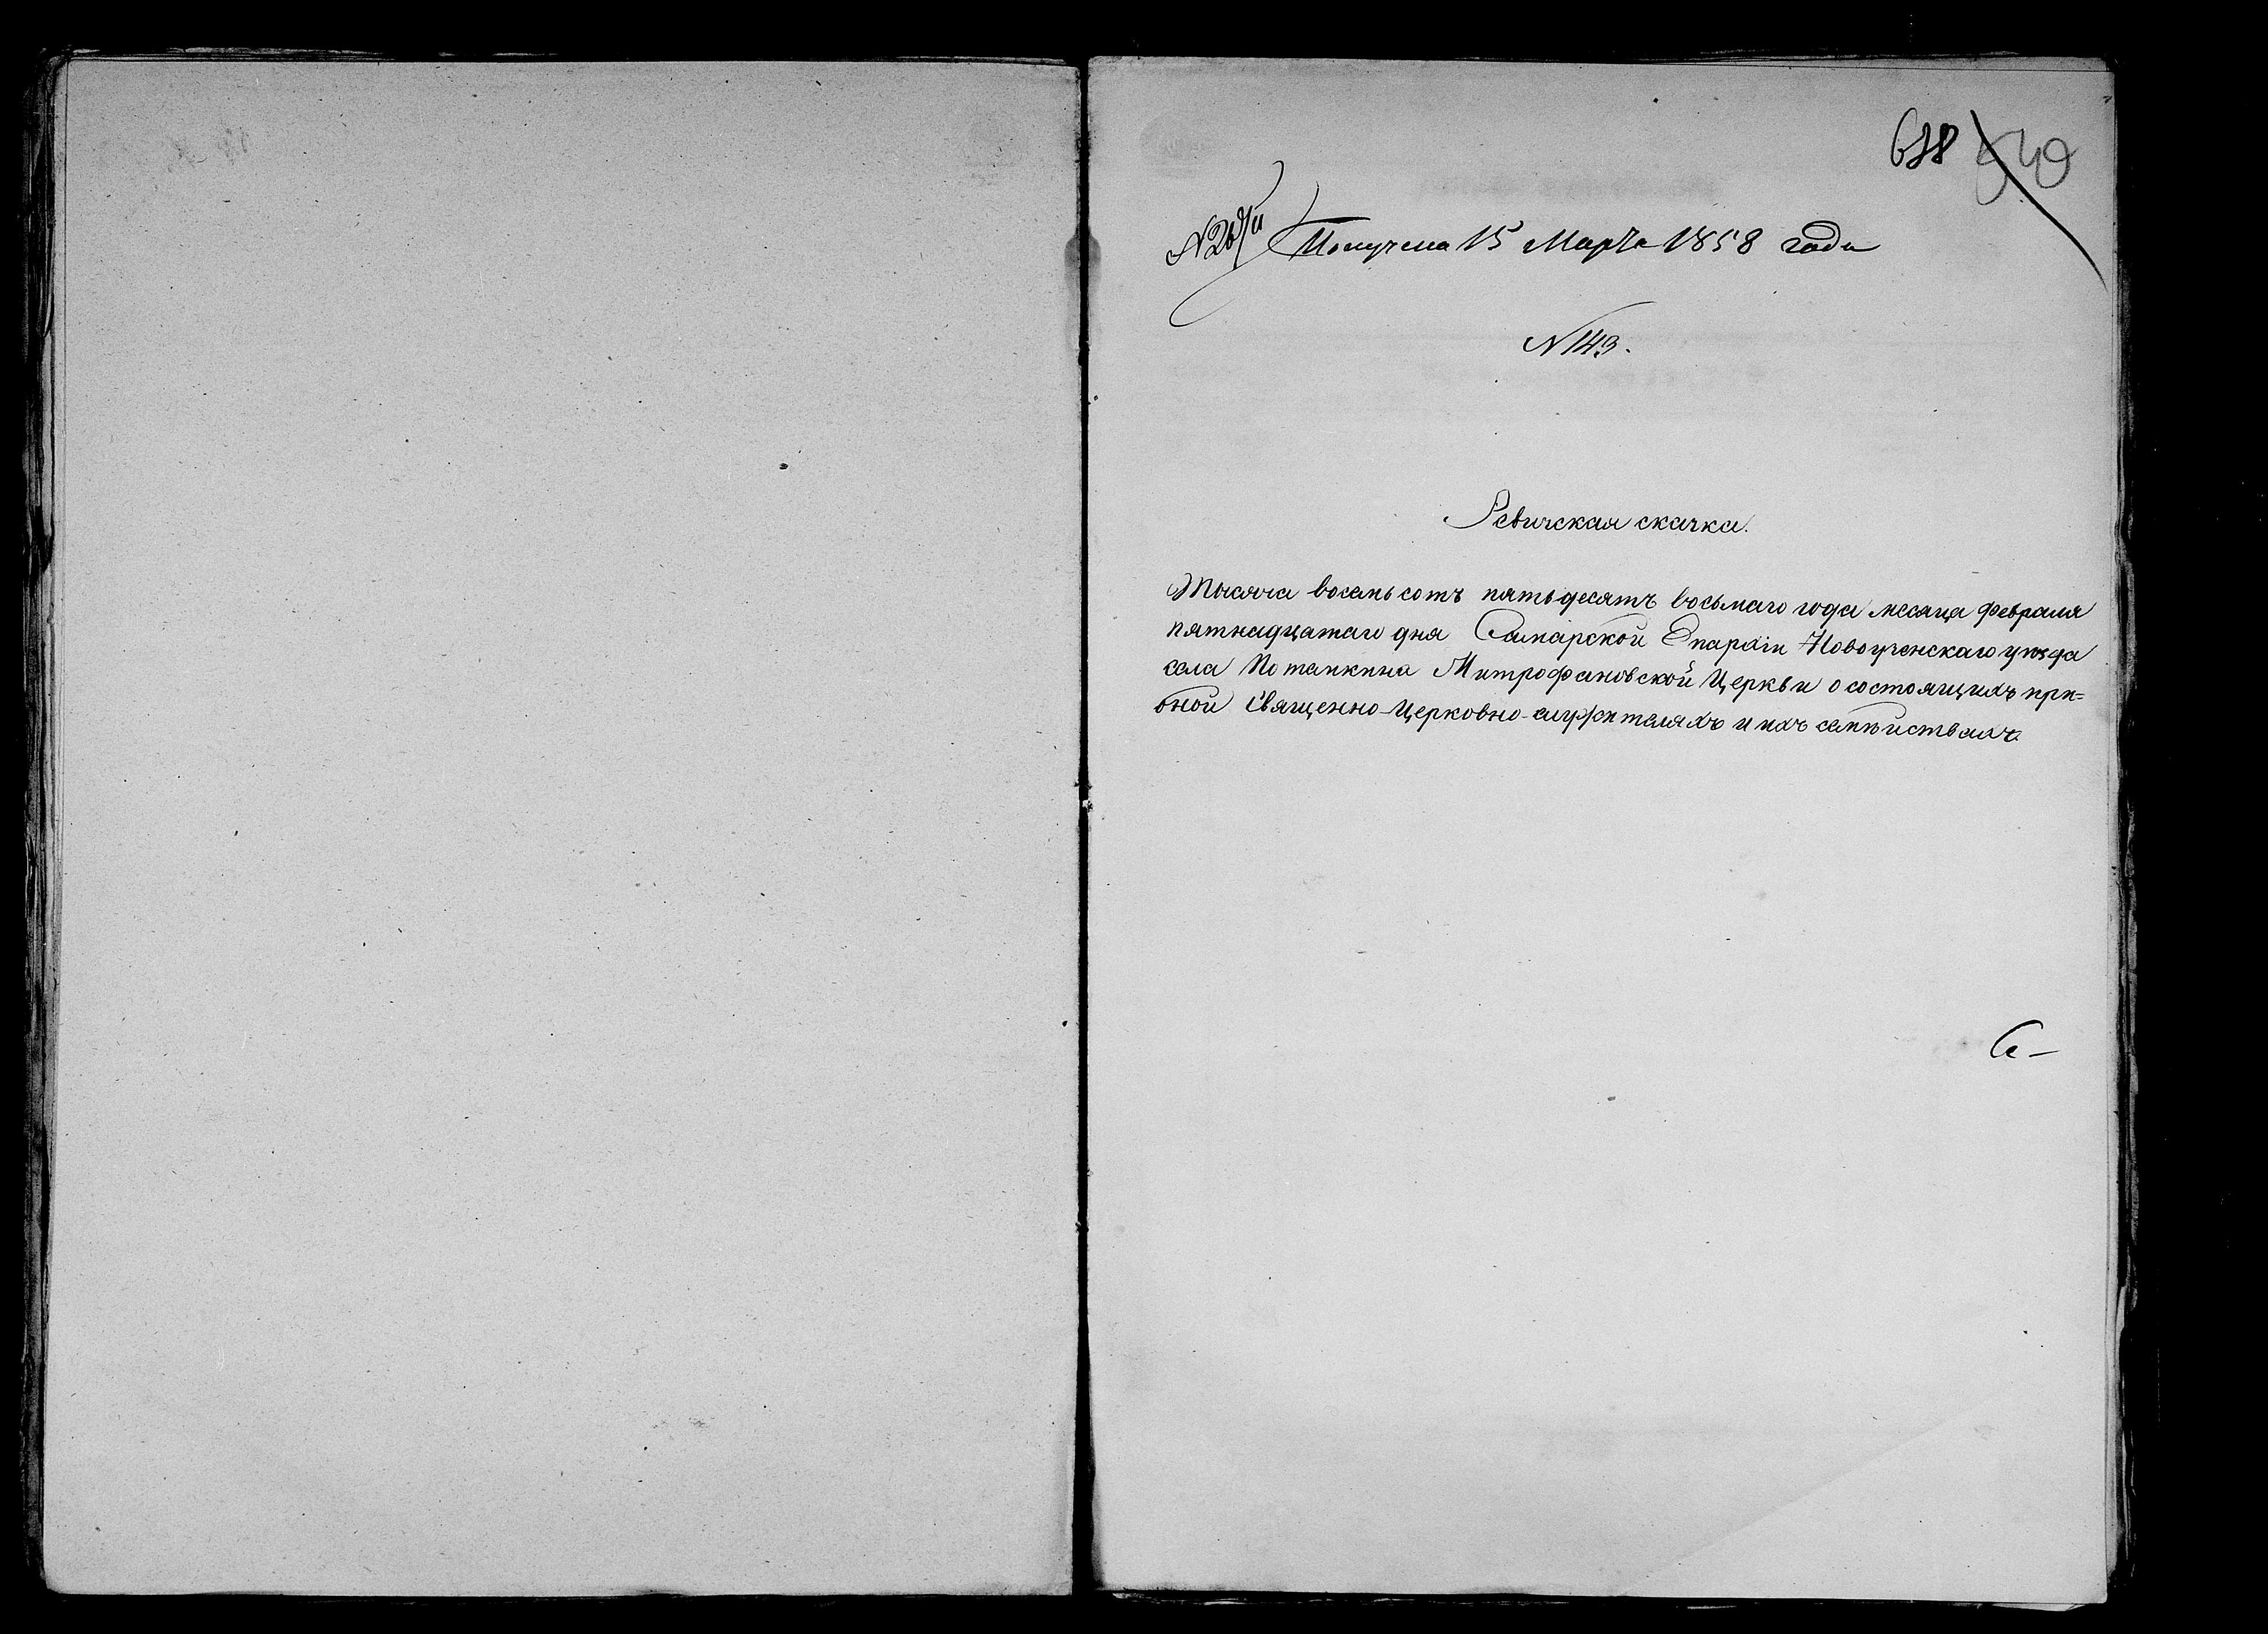 638
Получена 15 Марта 1858 года
N 143.
Ревичская скачка.
Тысяча восемьсотъ пятьдесятъ восьмаго года месяца февраля
пятнадцатаго дня Самарской Епархіи Новоузенскаго уѣзда
села Потемкина Митрофановской Церкви о состоящихъ при=
оной Священно-Церковно-служителяхъ и ихъ семѣйствахъ.